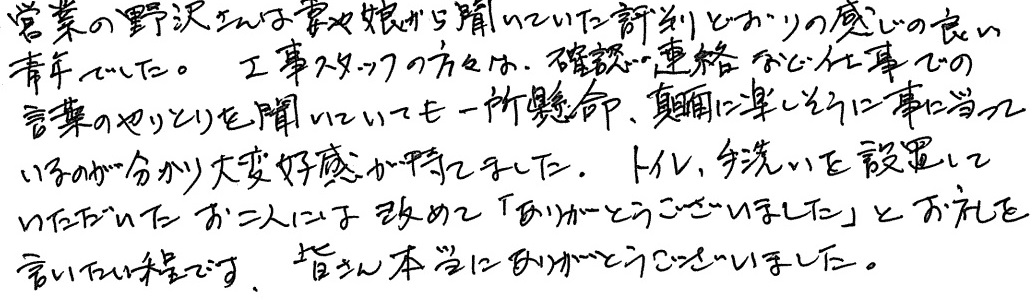 営業の野沢さんは妻や娘から聞いていた評判どおりの感じの良い
青年でした。 工事スタッフの方々は、確認・連絡など仕事での
言葉のやりとりを聞いていても一所懸命、真面目に楽しそうに事に当って
いるのが分かり大変好感が持てました。 トイレ、手洗いを設置して
いただいたお二人には改めて「ありがとうございました」とお礼を
言いたい程です、 皆さん本当にありがとうございました。